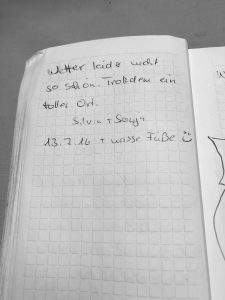 Wetter leider nicht
so schön. Trotzdem ein
toller Ort.
Silvia + Sonja
13.7.16 + nasse Füße ☺